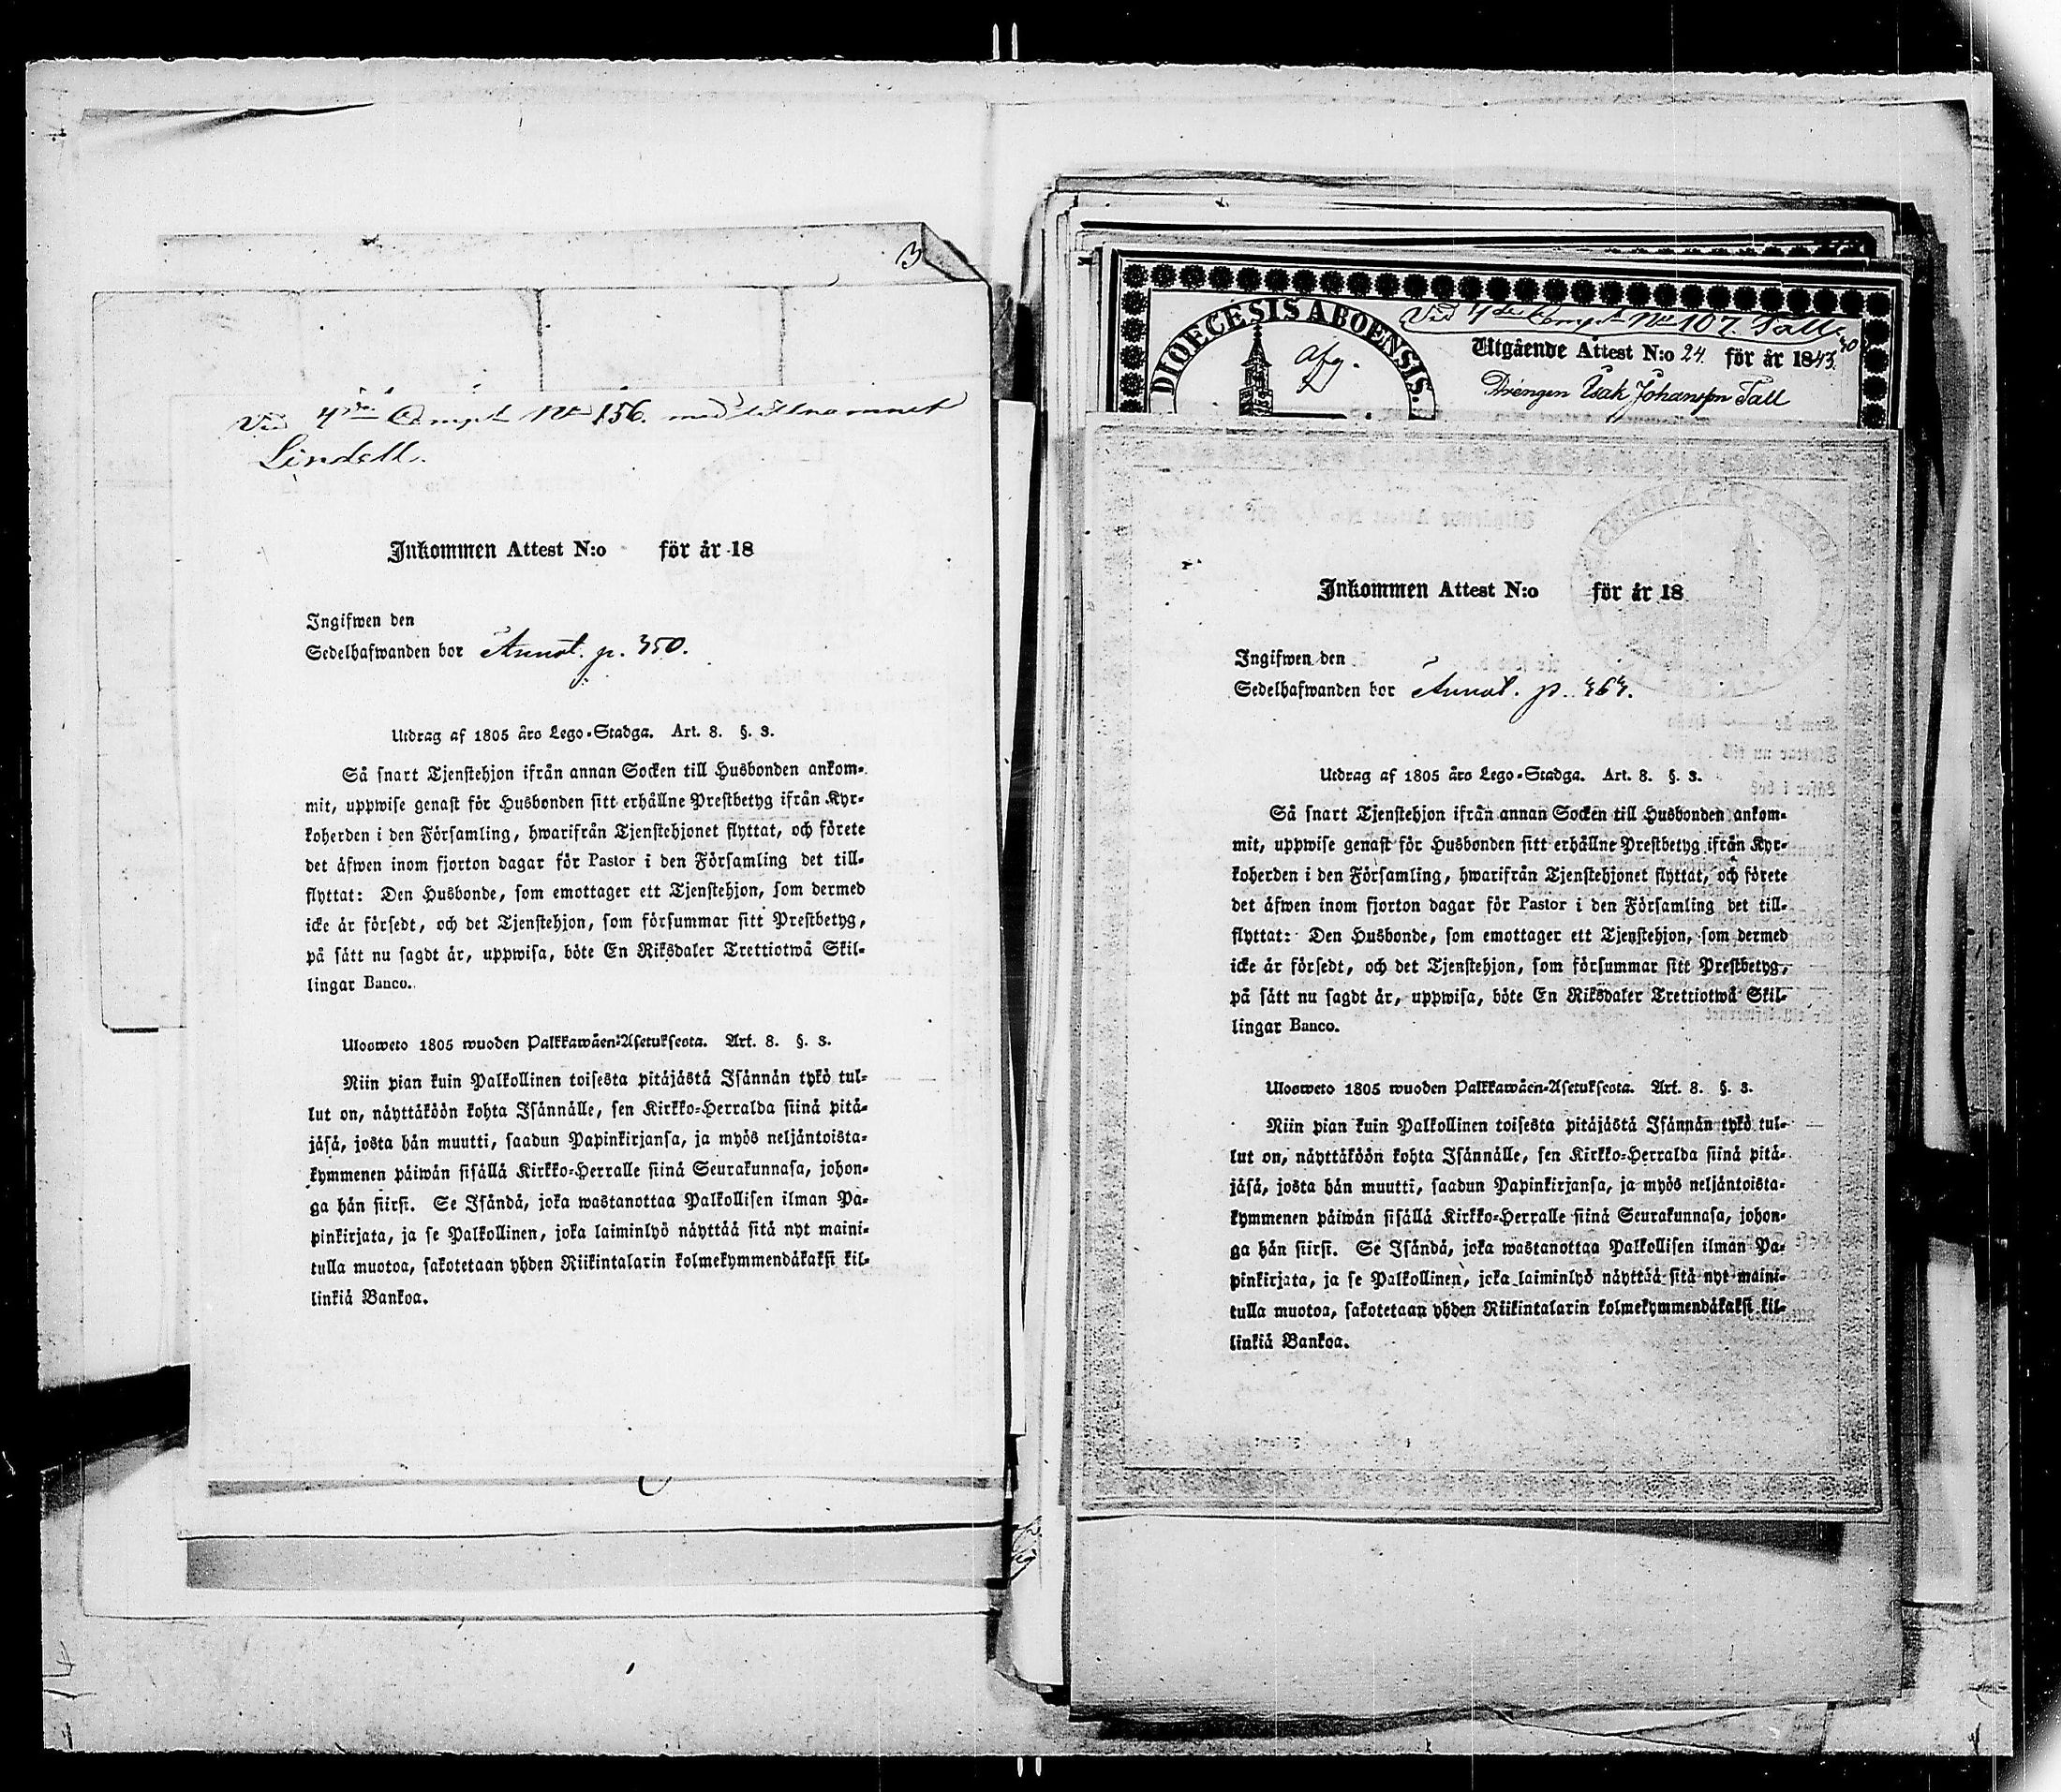 3
Vid 4de Comp. No 156. med tillnamnet
Lindell.
Inkommen Attest N:o för år 18
Ingifwen den
Sedelhafwanden bor Annot. p. 350.
Utdrag af 1805 års Lego-Stadga. Art. 8. §. 3.
Så snart Tjenstehjon ifrån annan Socken till Husbonden ankom-
mit, uppwise genast för Husbonden sitt erhållne Prestbetyg ifrån Kyr-
koherden i den Församling, hwarifrån Tjenstehjonet flyttat, och förete
det äfwen inom fjorton dagar för Pastor i den Församling det till-
flyttat: Den Husbonde, som emottager ett Tjenstehjon, som dermed
icke är försedt, och det Tjenstehjon, som försummar sitt Prestbetyg,
på sätt nu sagdt är, uppwisa, böte En Riksdaler Trettiotwå Skil-
lingar Banco.
Ulosweto 1805 wuoden Palkkawäen-Asetuksesta. Art. 8. §. 3.
Niin pian kuin Palkollinen toisesta pitäjästä Isännän tykö tul-
lut on, näyttäköön kohta Isännälle, sen Kirkko-Herralda siinä pitä-
jäsä, josta hän muutti, saadun Papinkirjansa, ja myös neljäntoista-
kymmenen päiwän sisällä Kirkko-Herralle siinä Seurakunnasa, johon-
ga hän siirsi. Se Isändä, joka wastanottaa Palkollisen ilman Pa-
pinkirjata, ja se Palkollinen, joka laiminlyö näyttää sitä nyt maini-
tulla muotoa, sakotetaan yhden Riikintalarin kolmekymmendäkaksi kil-
linkiä Bankoa.
Vid 4de Comp. No 107. Tall
DIOECESIS ABOENSIS.
afg.
Utgående Attest N:o 24. för år 1843.
Drengen Isak Johansson Tall
Inkommen Attest N:o för år 18
Ingifwen den
Sedelhafwanden bor Annot. p. 363.
Utdrag af 1805 års Lego-Stadga. Art. 8. §. 3.
Så snart Tjenstehjon ifrån annan Socken till Husbonden ankom-
mit, uppwise genast för Husbonden sitt erhållne Prestbetyg ifrån Kyr-
koherden i den Församling, hwarifrån Tjenstehjonet flyttat, och förete
det äfwen inom fjorton dagar för Pastor i den Församling det till-
flyttat: Den Husbonde, som emottager ett Tjenstehjon, som dermed
icke är försedt, och det Tjenstehjon, som försummar sitt Prestbetyg,
på sätt nu sagdt är, uppwisa, böte En Riksdaler Trettiotwå Skil-
lingar Banco.
Ulosweto 1805 wuoden Palkkawäen-Asetuksesta. Art. 8. §. 3.
Niin pian kuin Palkollinen toisesta pitäjästä Isännän tykö tul-
lut on, näyttäköön kohta Isännälle, sen Kirkko-Herralda siinä pitä-
jäsä, josta hän muutti, saadun Papinkirjansa, ja myös neljäntoista-
kymmenen päiwän sisällä Kirkko-Herralle siinä Seurakunnasa, johon-
ga hän siirsi. Se Isändä, joka wastanottaa Palkollisen ilman Pa-
pinkirjata, ja se Palkollinen, joka laiminlyö näyttää sitä nyt maini-
tulla muotoa, sakotetaan yhden Riikintalarin kolmekymmendäkaksi kil-
linkiä Bankoa.